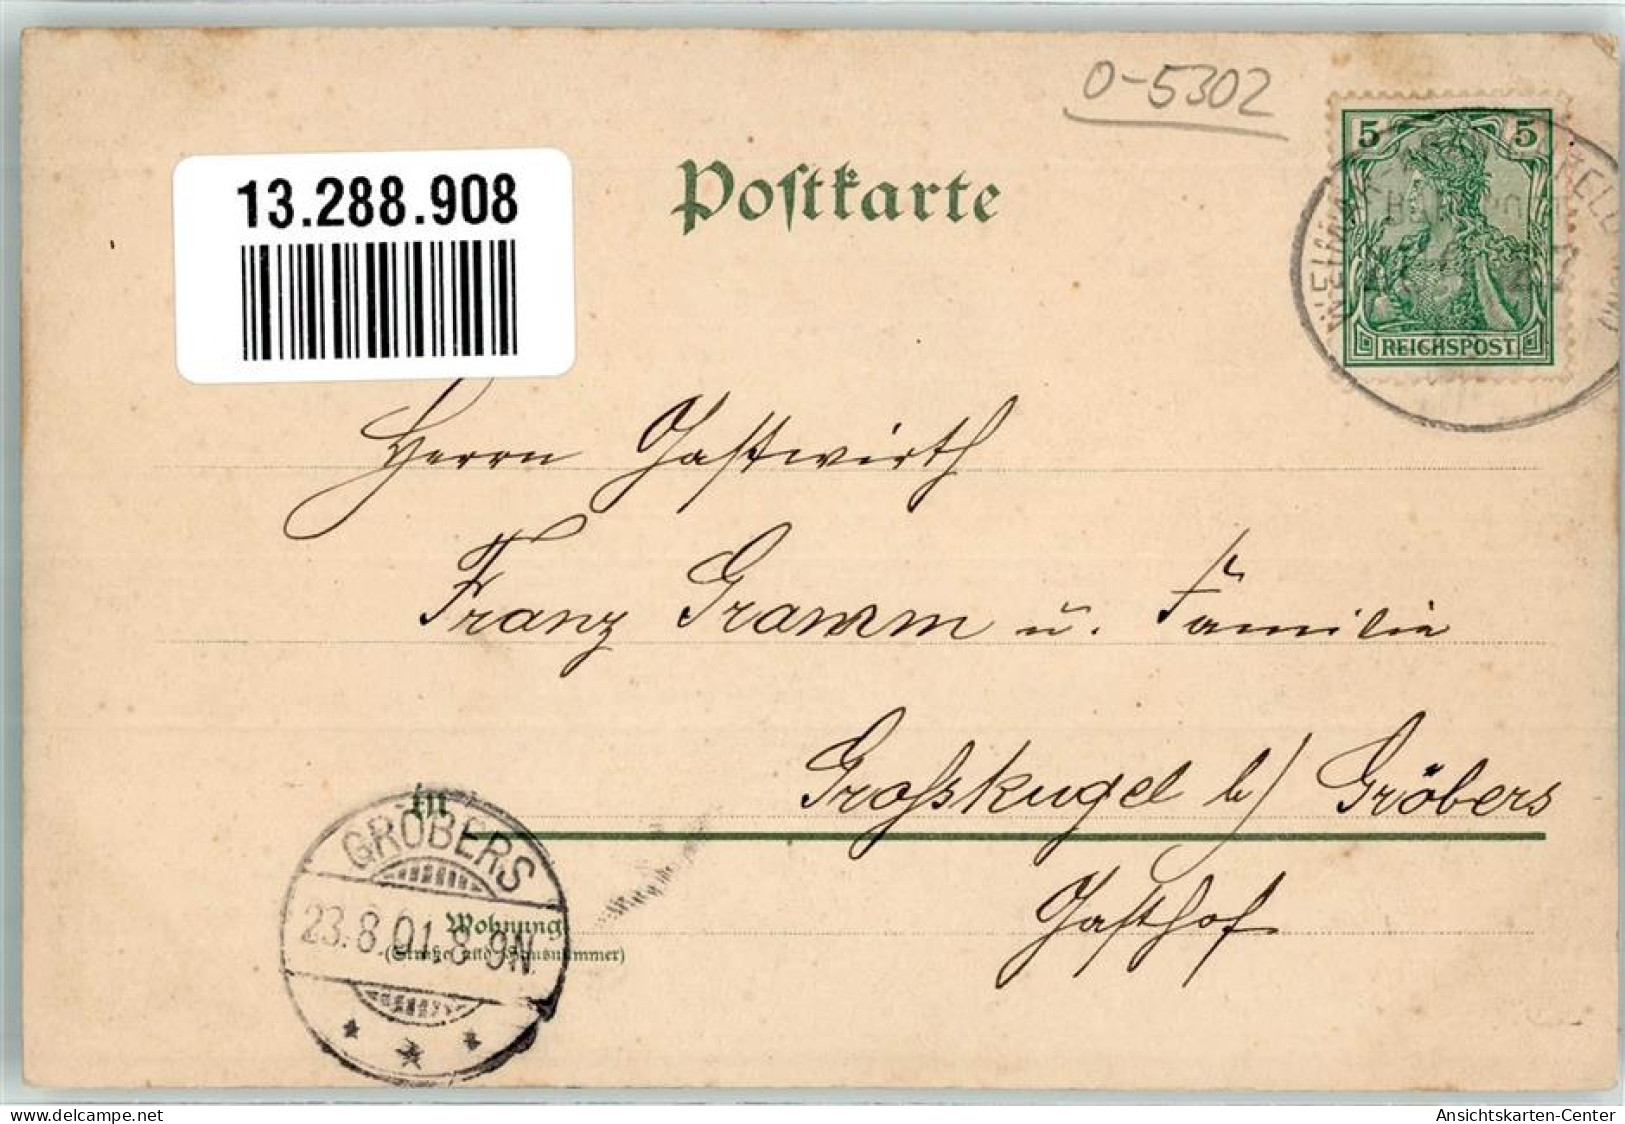 O-5302
13.288.908
Postkarte
5 5
REICHSPOST
Herrn Gastwirth
Franz Gramm u. Familie
Grosskugel b/ Gröbers
in
Gasthof
Wohnung
(Straße und Hausnummer)
GRÖBERS
23.8.01.8-9N.
delcampe.net
Ansichtskarten-Center